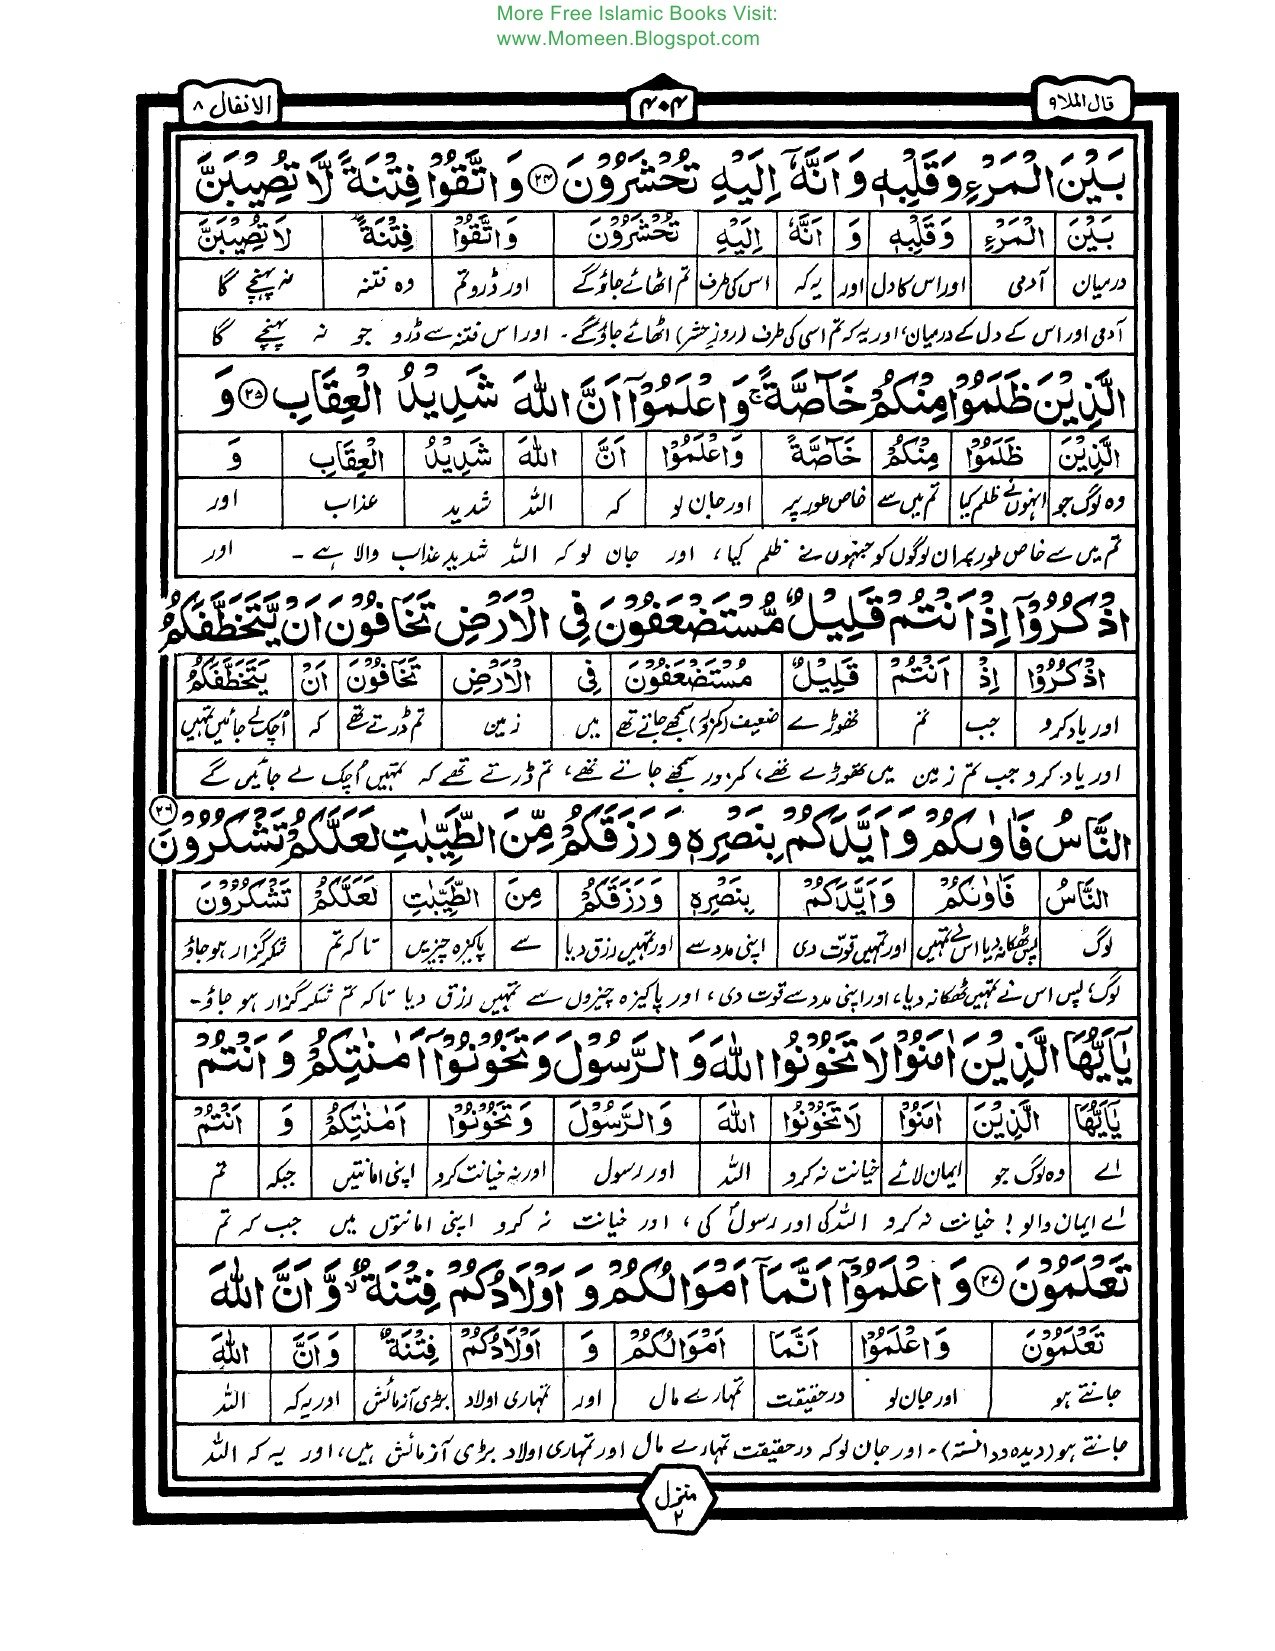 More Free Islamic Books Visit:
www.Momeen.Blogspot.com
قال الملا ۹
۴۰۴
الانفال ۸
بَيْنَ الْمَرْءِ وَقَلْبِهٖ وَاَنَّهٗٓ اِلَيْهِ تُحْشَرُوْنَ ۲۴ وَاتَّقُوْا فِتْنَةً لَّا تُصِيْبَنَّ
بَيْنَ الْمَرْءِ وَقَلْبِهٖ وَ اَنَّهٗ اِلَيْهِ تُحْشَرُوْنَ وَاتَّقُوْا فِتْنَةً لَا تُصِيْبَنَّ
درمیان آدمی اور اس کا دل اور یہ کہ اس کی طرف تم اٹھائے جاؤگے اور ڈرو تم وہ فتنہ نہ پہنچے گا
آدمی اور اس کے دل کے درمیان، اور یہ کہ تم اسی کی طرف (روز حشر) اٹھائے جاؤگے۔ اور اس فتنہ سے ڈرو جو نہ پہنچے گا
الَّذِيْنَ ظَلَمُوْا مِنْكُمْ خَآصَّةً ۚ وَاعْلَمُوْٓا اَنَّ اللّٰهَ شَدِيْدُ الْعِقَابِ ۲۵ وَ
الَّذِيْنَ ظَلَمُوْا مِنْكُمْ خَآصَّةً وَاعْلَمُوْٓا اَنَّ اللّٰهَ شَدِيْدُ الْعِقَابِ وَ
وہ لوگ جو انہوں نے ظلم کیا تم میں سے خاص طور پر اور جان لو کہ اللہ شدید عذاب اور
تم میں سے خاص طور پر ان لوگوں کو جنہوں نے ظلم کیا، اور جان لو کہ اللہ شدید عذاب والا ہے۔ اور
اذْكُرُوْٓا اِذْ اَنْتُمْ قَلِيْلٌ مُّسْتَضْعَفُوْنَ فِى الْاَرْضِ تَخَافُوْنَ اَنْ يَّتَخَطَّفَكُمُ
اذْكُرُوْا اِذْ اَنْتُمْ قَلِيْلٌ مُسْتَضْعَفُوْنَ فِى الْاَرْضِ تَخَافُوْنَ اَنْ يَتَخَطَّفَكُمُ
اور یاد کرو جب تم تھوڑے ضعیف (کمزور) سمجھے جاتے تھے میں زمین تم ڈرتے تھے کہ اُچک لے جائیں تمہیں
اور یاد کرو جب تم زمین میں تھوڑے تھے، کمزور سمجھے جاتے تھے، تم ڈرتے تھے کہ تمہیں اُچک لے جائیں گے
النَّاسُ فَاٰوٰىكُمْ وَاَيَّدَكُمْ بِنَصْرِهٖ وَرَزَقَكُمْ مِّنَ الطَّيِّبٰتِ لَعَلَّكُمْ تَشْكُرُوْنَ ۲۶
النَّاسُ فَاٰوٰىكُمْ وَاَيَّدَكُمْ بِنَصْرِهٖ وَرَزَقَكُمْ مِنَ الطَّيِّبٰتِ لَعَلَّكُمْ تَشْكُرُوْنَ
لوگ پس ٹھکانہ دیا اس نے تمہیں اور تمہیں قوّت دی اپنی مدد سے اور تمہیں رزق دیا سے پاکیزہ چیزیں تاکہ تم شکر گزار ہو جاؤ
لوگ، پس اس نے تمہیں ٹھکانہ دیا، اور اپنی مدد سے قوت دی، اور پاکیزہ چیزوں سے تمہیں رزق دیا تاکہ تم شکر گزار ہو جاؤ۔
يٰٓاَيُّهَا الَّذِيْنَ اٰمَنُوْا لَا تَخُوْنُوا اللّٰهَ وَالرَّسُوْلَ وَتَخُوْنُوْٓا اَمٰنٰتِكُمْ وَاَنْتُمْ
يٰٓاَيُّهَا الَّذِيْنَ اٰمَنُوْا لَا تَخُوْنُوا اللّٰهَ وَالرَّسُوْلَ وَتَخُوْنُوْٓا اَمٰنٰتِكُمْ وَ اَنْتُمْ
اے وہ لوگ جو ایمان لائے خیانت نہ کرو اللہ اور رسول اور نہ خیانت کرو اپنی امانتیں جبکہ تم
اے ایمان والو! خیانت نہ کرو اللہ کی اور رسولؐ کی، اور خیانت نہ کرو اپنی امانتوں میں جب کہ تم
تَعْلَمُوْنَ ۲۷ وَاعْلَمُوْٓا اَنَّمَآ اَمْوَالُكُمْ وَاَوْلَادُكُمْ فِتْنَةٌ ۙ وَّاَنَّ اللّٰهَ
تَعْلَمُوْنَ وَاعْلَمُوْٓا اَنَّمَا اَمْوَالُكُمْ وَ اَوْلَادُكُمْ فِتْنَةٌ وَاَنَّ اللّٰهَ
جانتے ہو اور جان لو درحقیقت تمہارے مال اور تمہاری اولاد بڑی آزمائش اور یہ کہ اللہ
جانتے ہو (دیدہ و دانستہ)۔ اور جان لو کہ درحقیقت تمہارے مال اور تمہاری اولاد بڑی آزمائش ہیں، اور یہ کہ اللہ
منزل ۲